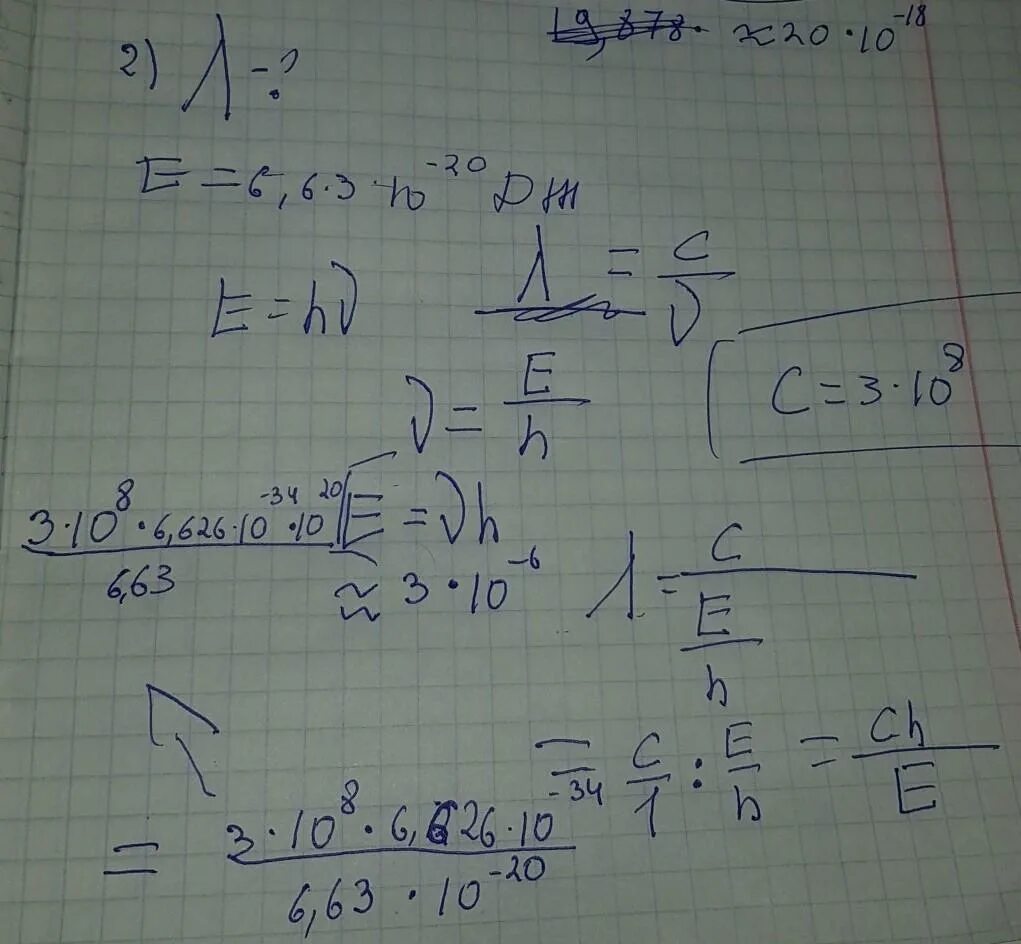 19,878· ≈20·10⁻¹⁸
2) λ-?
E=6,6·3·10⁻²⁰ Дж
E=hν λ = c/ν
ν = E/h
C=3·10⁸
E = νh
3·10⁸·6,626·10⁻³⁴·10²⁰ / 6,63 ≈ 3·10⁻⁶
λ = C / (E/h)
= C/1 : E/h = Ch/E
= 3·10⁸·6,626·10⁻³⁴ / 6,63·10⁻²⁰